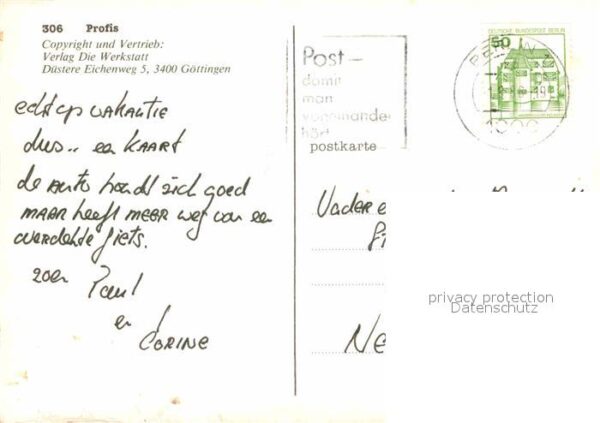 306 Profis
Copyright und Vertrieb:
Verlag Die Werkstatt
Düstere Eichenweg 5, 3400 Göttingen
echt op vakantie
dus.. een kaart
de auto houdt zich goed
maar heeft meer weg van een
fiets.
zoen
Paul
en
Corine
Post-
damit
man
voneinander
hört
postkarte
DEUTSCHE BUNDESPOST BERLIN
50
BERLIN
1000
Vader e
Ne
privacy protection
Datenschutz